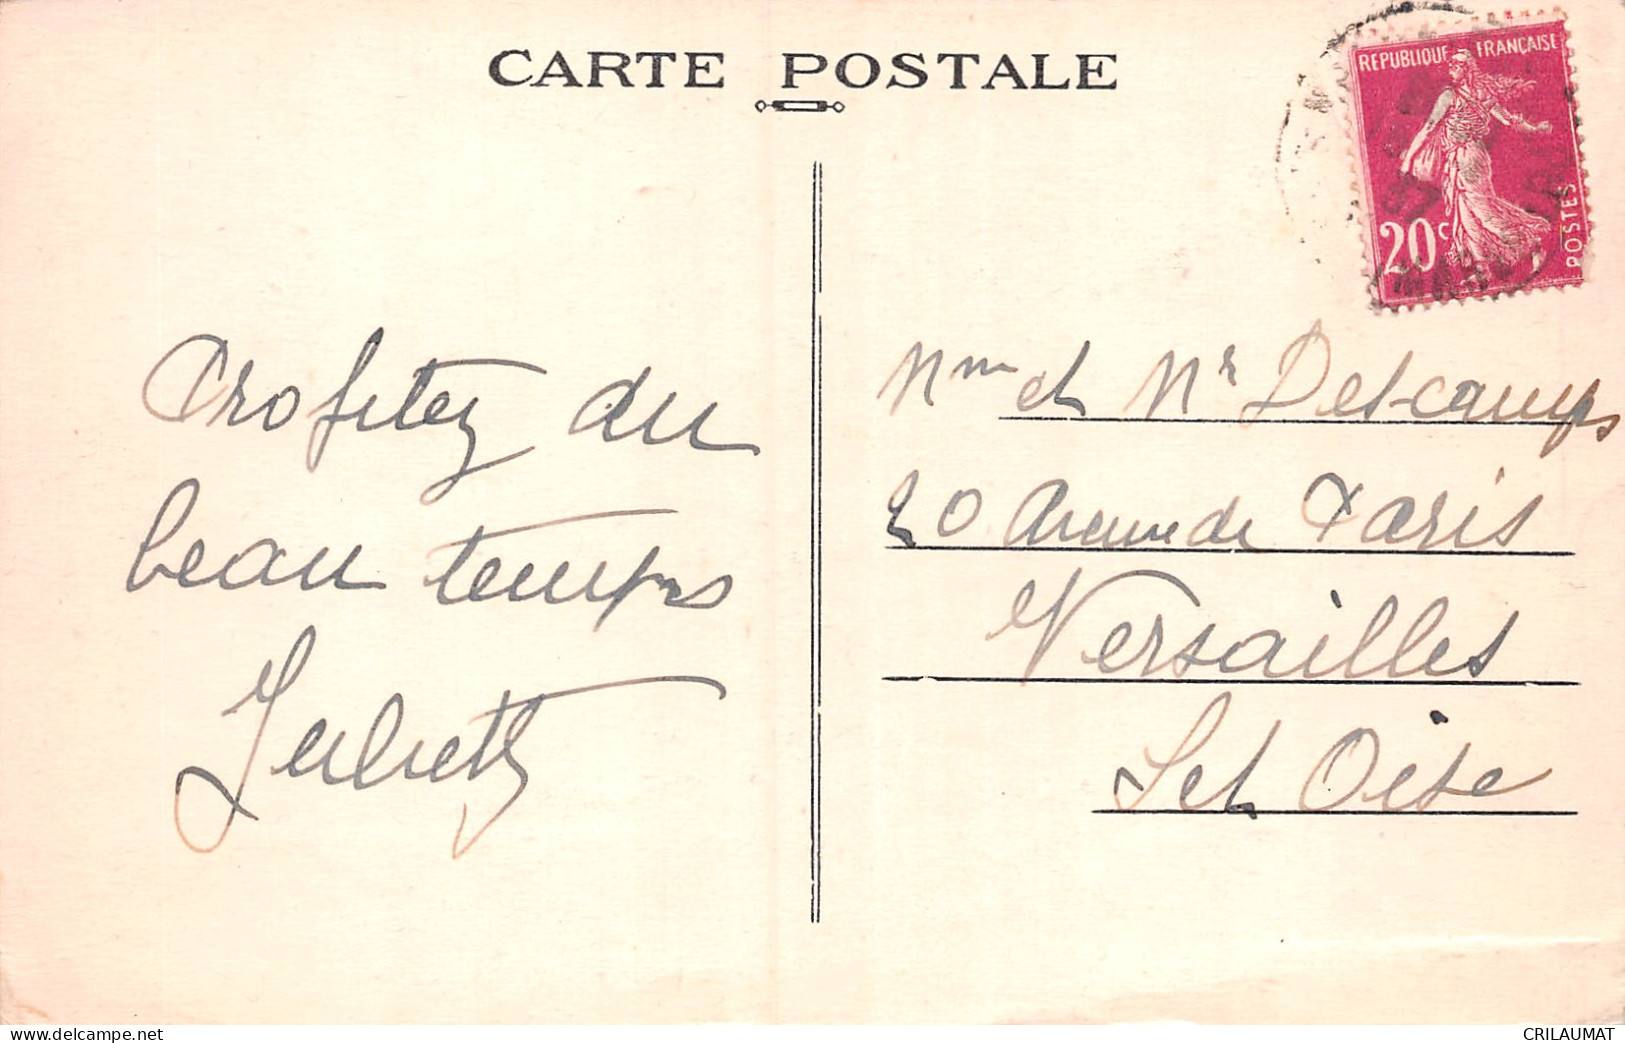 CARTE POSTALE
REPUBLIQUE FRANÇAISE
20c
POSTES
37
Profitez du
beau temps
Juliette
Mme et Mr Delcamps
20 Avenue de Paris
Versailles
S et Oise
https://www.delcampe.net
CRILAUMAT